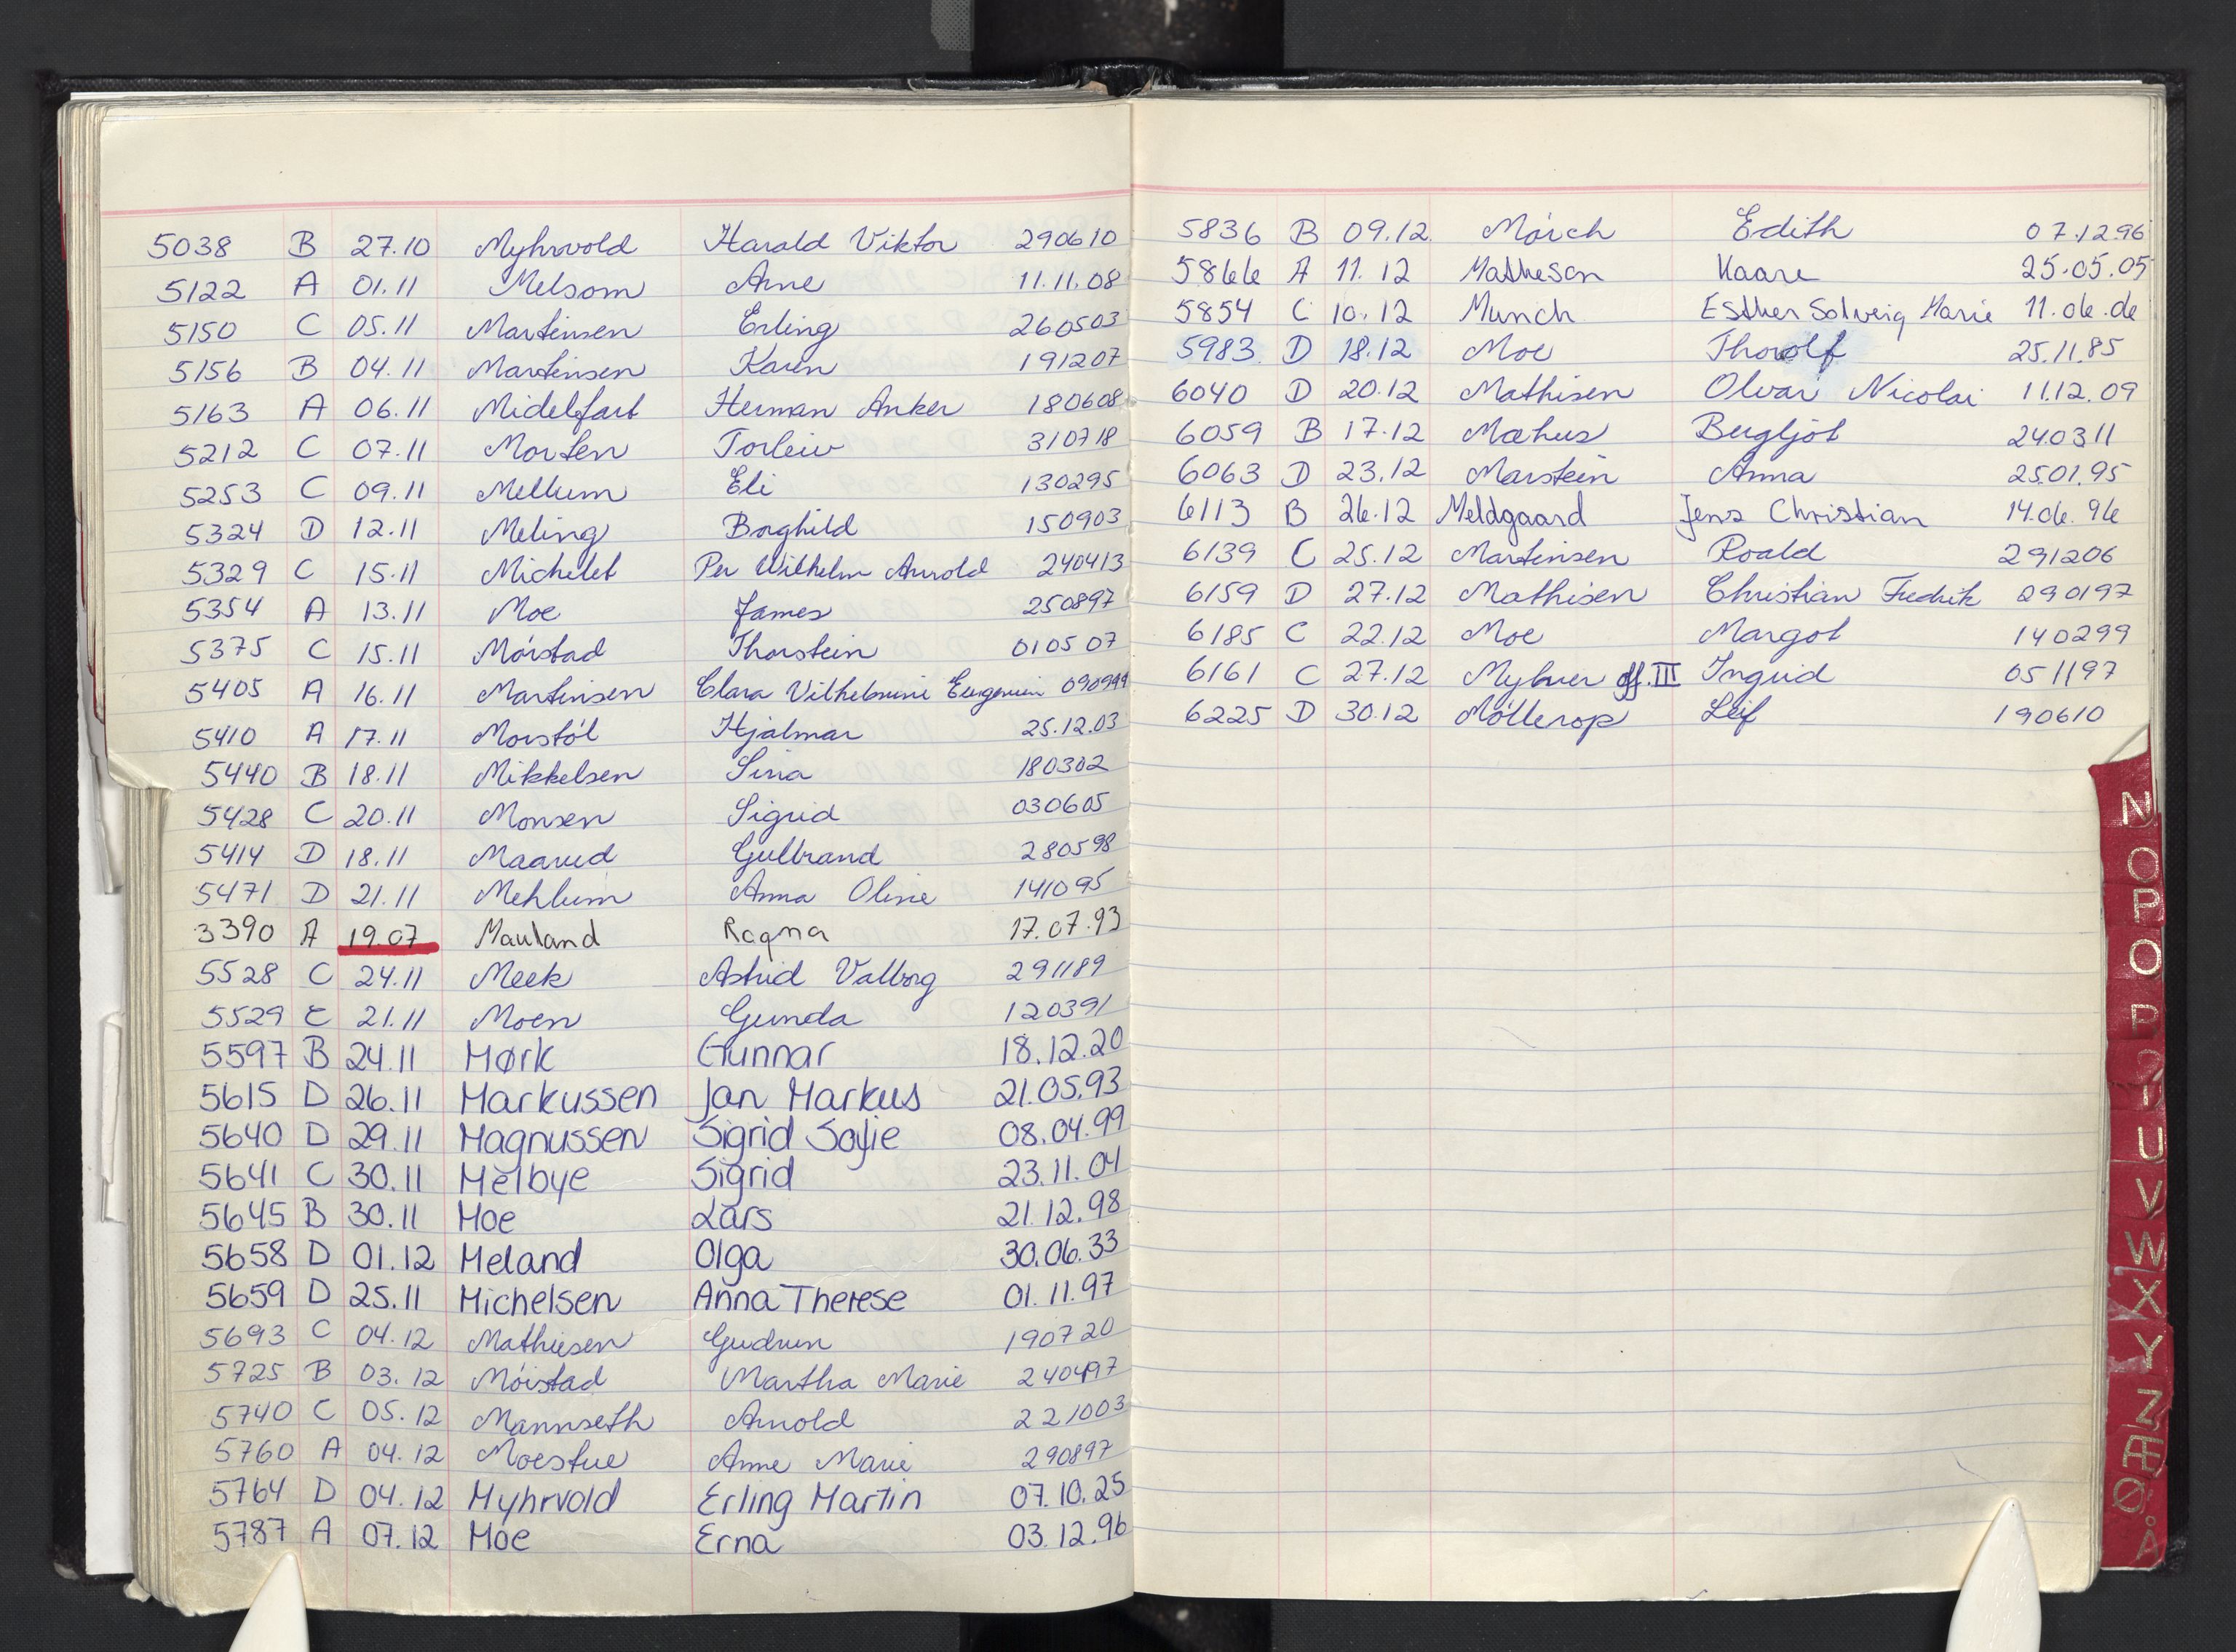 5038 B 27.10 Myhrvold Harald Viktor 290610
5122 A 01.11 Melsom Arne 11.11.08
5150 C 05.11 Martinsen Erling 260503
5156 B 04.11 Martinsen Karen 191207
5163 A 06.11 Midelfart Herman Anker 180608
5212 C 07.11 Morten Torleiv 310718
5253 C 09.11 Mellum Eli 130295
5324 D 12.11 Meling Borghild 150903
5329 C 15.11 Michelet Per Wilhelm Arnold 240413
5354 A 13.11 Moe James 250897
5375 C 15.11 Móistad Thorstein 010507
5405 A 16.11 Martinsen Clara Vilhelmine Eugenien 090999
5410 A 17.11 Morstól Hjalmar 25.12.03
5440 B 18.11 Mikkelsen Sina 180302
5428 C 20.11 Monsen Sigrid 030605
5414 D 18.11 Maarud Gulbrand 280598
5471 D 21.11 Mehlum Anna Oline 141095
3390 A 19.07 Mauland Ragna 17.07.93
5528 C 24.11 Meek Astrid Valborg 291189
5529 C 21.11 Moen Gunda 120391
5597 B 24.11 Mørk Gunnar 18.12.20
5615 D 26.11 Markussen Jan Markus 21.05.93
5640 D 29.11 Magnussen Sigrid Sofie 08.04.99
5641 C 30.11 Melbye Sigrid 23.11.04
5645 B 30.11 Moe Lars 21.12.98
5658 D 01.12 Meland Olga 30.06.33
5659 D 25.11 Michelsen Anna Therese 01.11.97
5693 C 04.12 Mathiesen Gudrun 190720
5725 B 03.12 Móistad Martha Marie 240497
5740 C 05.12 Mannseth Arnold 221003
5760 A 04.12 Moestue Anne Marie 290897
5764 D 04.12 Myhrvold Erling Martin 07.10.25
5787 A 07.12 Moe Erna 03.12.96
5836 B 09.12 Mórch Edith 07.12.96
5866 A 11.12 Matheson Kaare 25.05.05
5854 C 10.12 Munch Esther Solveig Marie 11.06.06
5983 D 18.12 Moe Thorolf 25.11.85
6040 D 20.12 Mathisen Olvar Nicolai 11.12.09
6059 B 17.12 Mæhus Bergljot 240311
6063 D 23.12 Marstein Anna 25.01.95
6113 B 26.12 Meldgaard Jens Christian 14.06.96
6139 C 25.12 Martinsen Roald 291206
6159 D 27.12 Mathisen Christian Fredrik 290197
6185 C 22.12 Moe Margot 140299
6161 C 27.12 Myhrer off. III Ingrid 051197
6225 D 30.12 Móllerop Leif 190610
N
O
P
O
P
T
U
V
W
X
Y
Z
Æ
Ø
Å